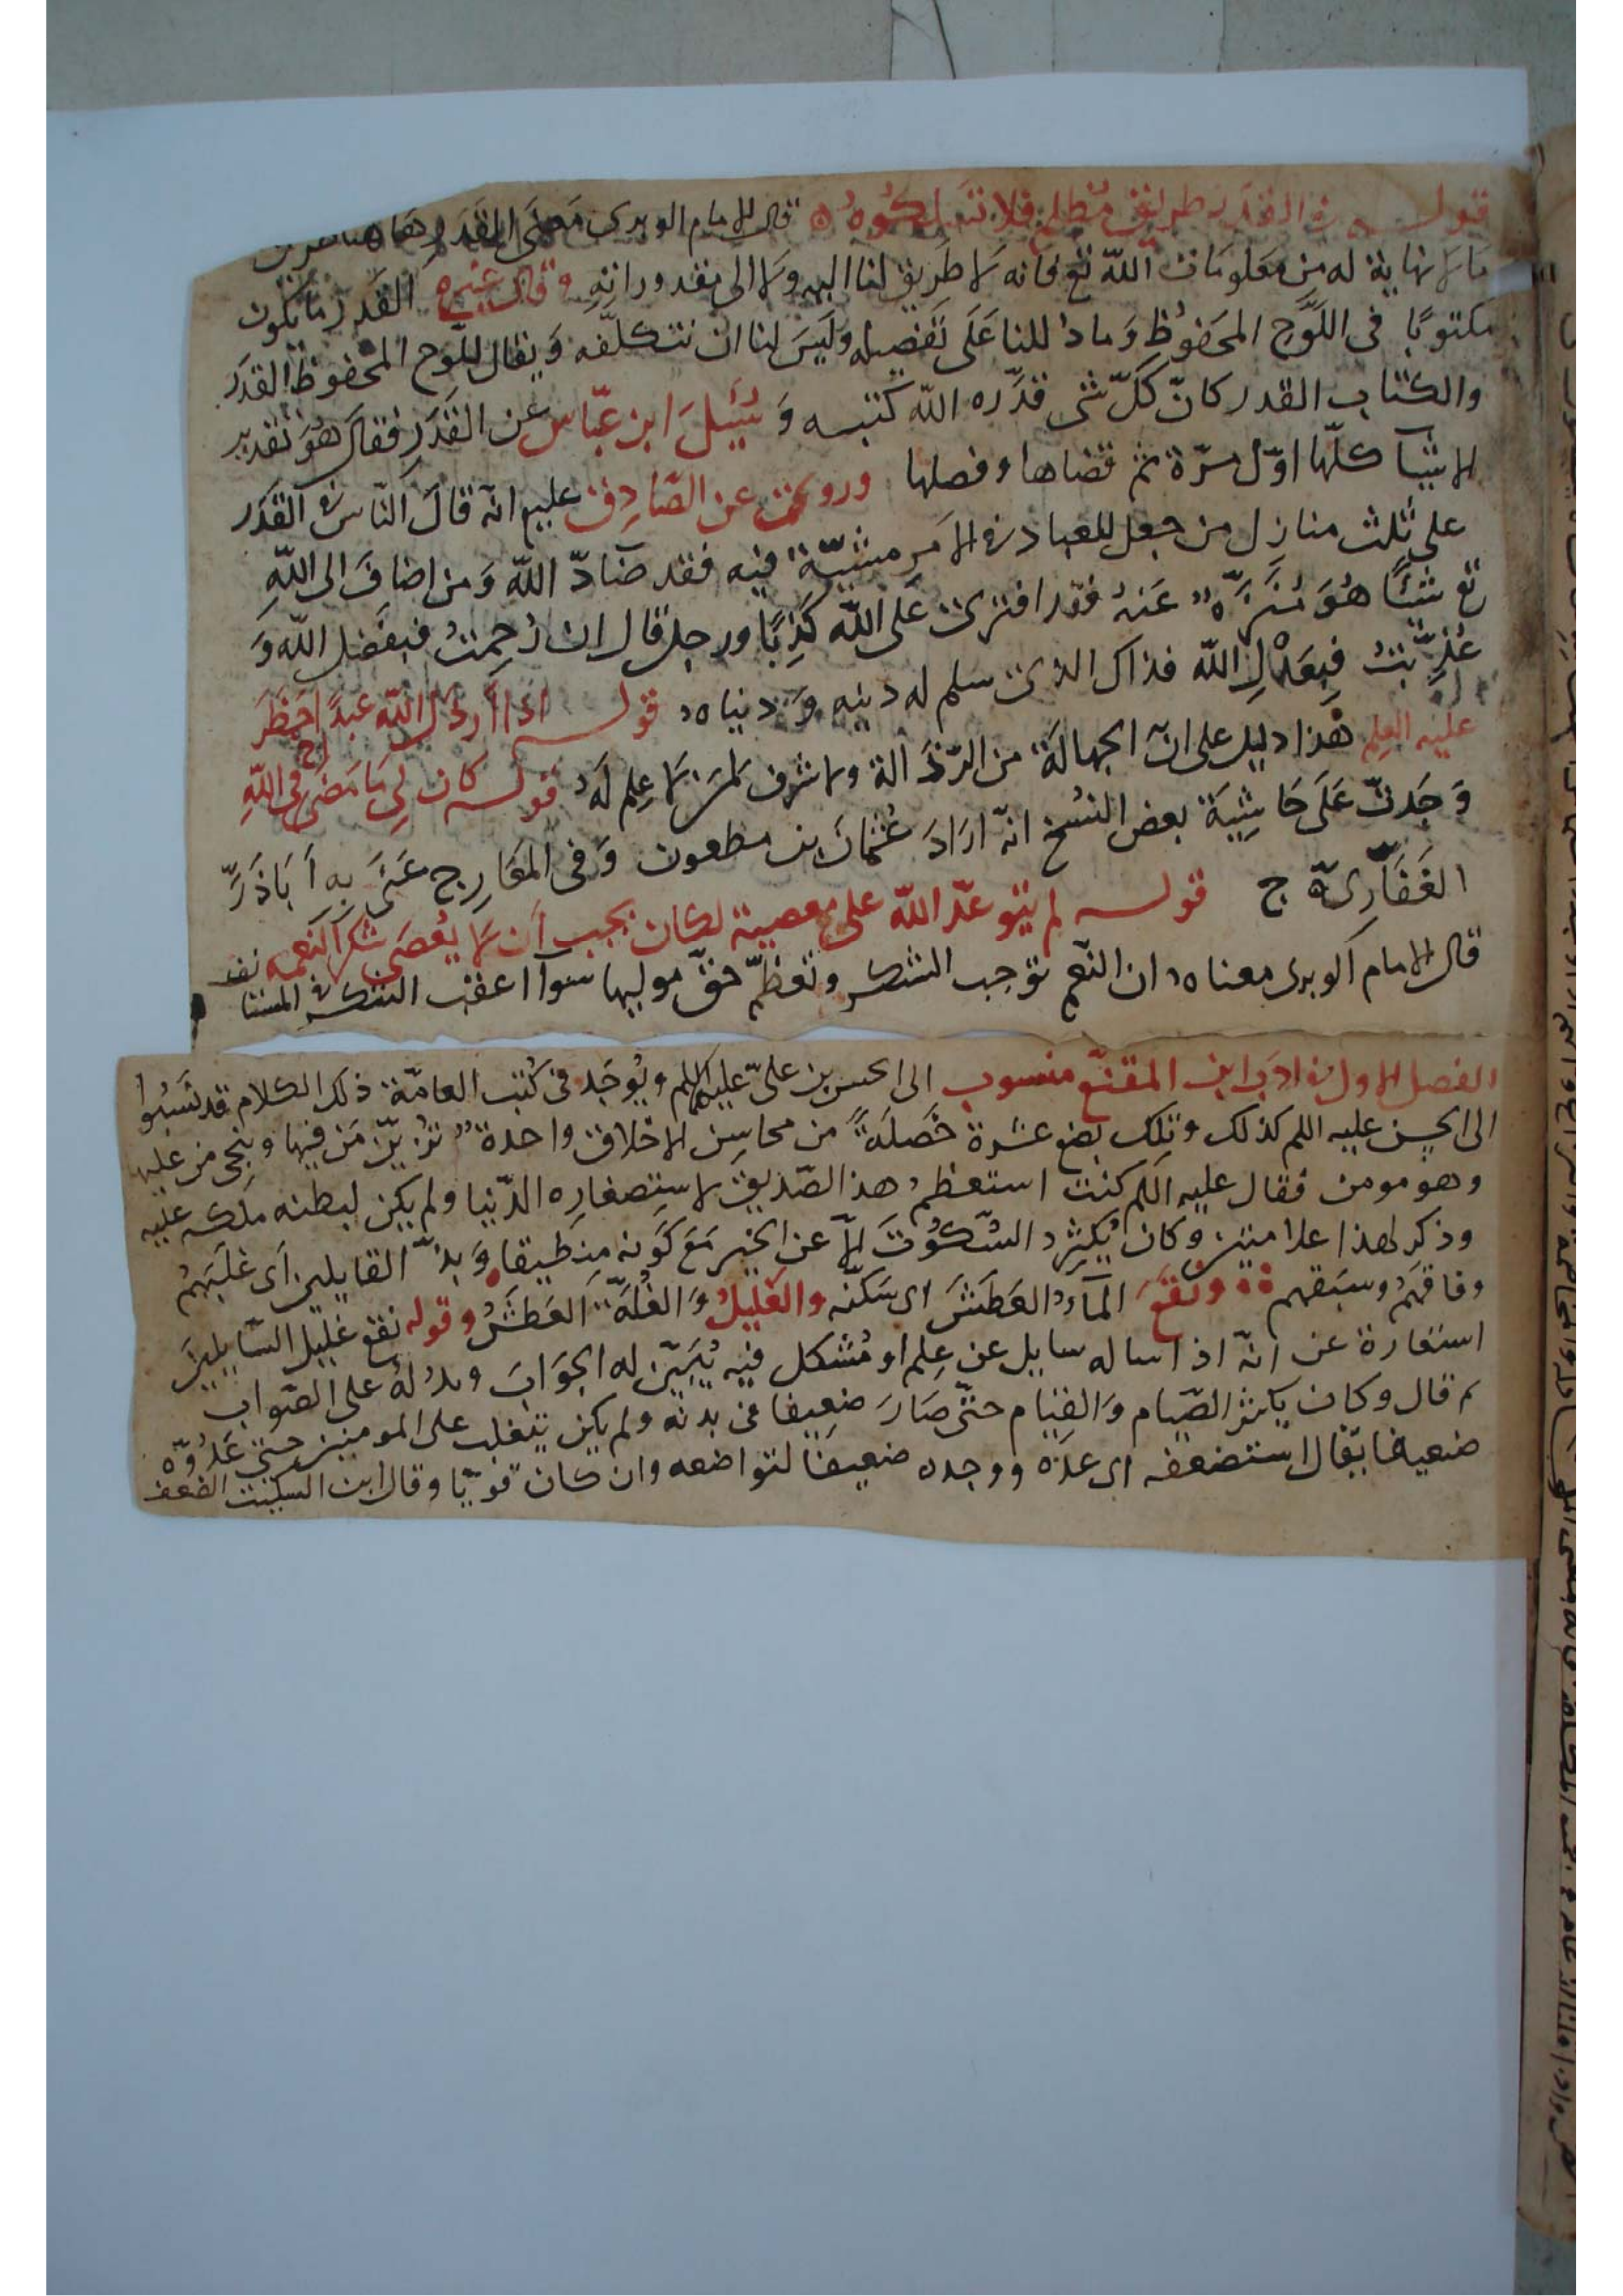 قوله في القدر طريق مظلم فلا تسلكوه قال الامام الوبرى معنى القدر هاهنا
ما لا نهاية له من معلومات الله تع فانه لا طريق لنا اليه ولا الى مقدوراته وقال غيره القدر ما يكون
مكتوبًا في اللَّوح المحفُوظِ وَما دُللنا عَلَى تَفصيله ولَيسَ لنا ان نتكلّفه وَيقال للّوح المحفوظ القدَر
والكتاب القدر كانّ كلّ شى قدّره الله كتبه وَسُئِلَ ابن عبّاس عن القَدَر فقال هُوَ تقدير
الاشيا كلّها اوّل مرّة ثم قضاها وفصلها وروى عن الصّادِق عليم انّه قالَ النّاس في القَدَر
على ثلث منازل من جعل للعباد في الامَر مشيّة فيه فقد ضادّ الله وَمن اضافَ الى الله
تع شيًا هُوَ مُنَزَّهٌ عَنهُ فقد افترى عَلى الله كَذِبًا ورجل قال ان رُحِمتُ فبفَضل الله وَ
عُذِّبتُ فبِعَدْلِ الله فذاك الذى سلم له دينه وَدنياه قوله اذا ارذل الله عبدًا حَظَرَ
عليه العِلم هذا دليل على انّ الجهالَة من الرّذَالة ولا شرف لمن لا عِلم لَهُ قوله كان لِي مَا مَضَى اخ في اللّهِ
وَجَدتّ عَلَى حَاشِيَة بعض النسُخ انّه ارَادَ عُثمانَ بن مطعون وَفى المَعَارِج عَنَى بِهِ اَبَاذَرّ
الغَفَّارِىّ ج قوله لم يتوعّد الله على معصية لكان يجب اَن لا يُعصَى شكرا لنعمه
قال الامام الوبرى معناه ان النعم توجب الشكر وتعظمّ حقّ موليها سوآ اعقب الشكر في المستا
الفصل الاول في ادَب ابن المقفّع منسوب الى الحسن بن علىّ عليهما اللم ويُوجَد في كُتب العامّة ذلك الكلام قد نَسَبُوا
الى الحسن عليه اللم كذلك وتلك بضع عشرة خَصلَةً من محاسِن الاخلاق واحدة تزيّن مَن فيها وينجى من عليها
وهو مومن فقال عليه اللم كنت استعظم هذ الصّديق لاستِصغارِه الدّنيا ولم يكن لبطنه ملكه عليه
وذكر لهذا علامتين وكان يُكثِر السّكُوتَ الاّ عن الخير مَع كَونه منطيقا وَبذّ القايلين اَى غلَبَهُم
وفاقهَم وسبَقهم ونقَعَ المآءُ العَطَشَ اى سَكنّه والغَليلُ وَالغُلّة العَطَشُ وقوله نقع غليل السّايلينَ
استعارة عن انّه اذا ساله سايل عن عِلم او مُشكل فيه يُبَيّن له الجوَابَ ويدُلهُ على الصّواب
ثم قال وكان يكثر الصّيام وَالقيام حتّى صَارَ ضعِيفا في بدنه ولم يكن يتغلب على المومنين حتى عَدُوّه
ضعيفا يقال استضعفه اى عدّه ووجده ضعيفًا لتواضعه وان كان قويّا وقال ابن السكيت الضعف